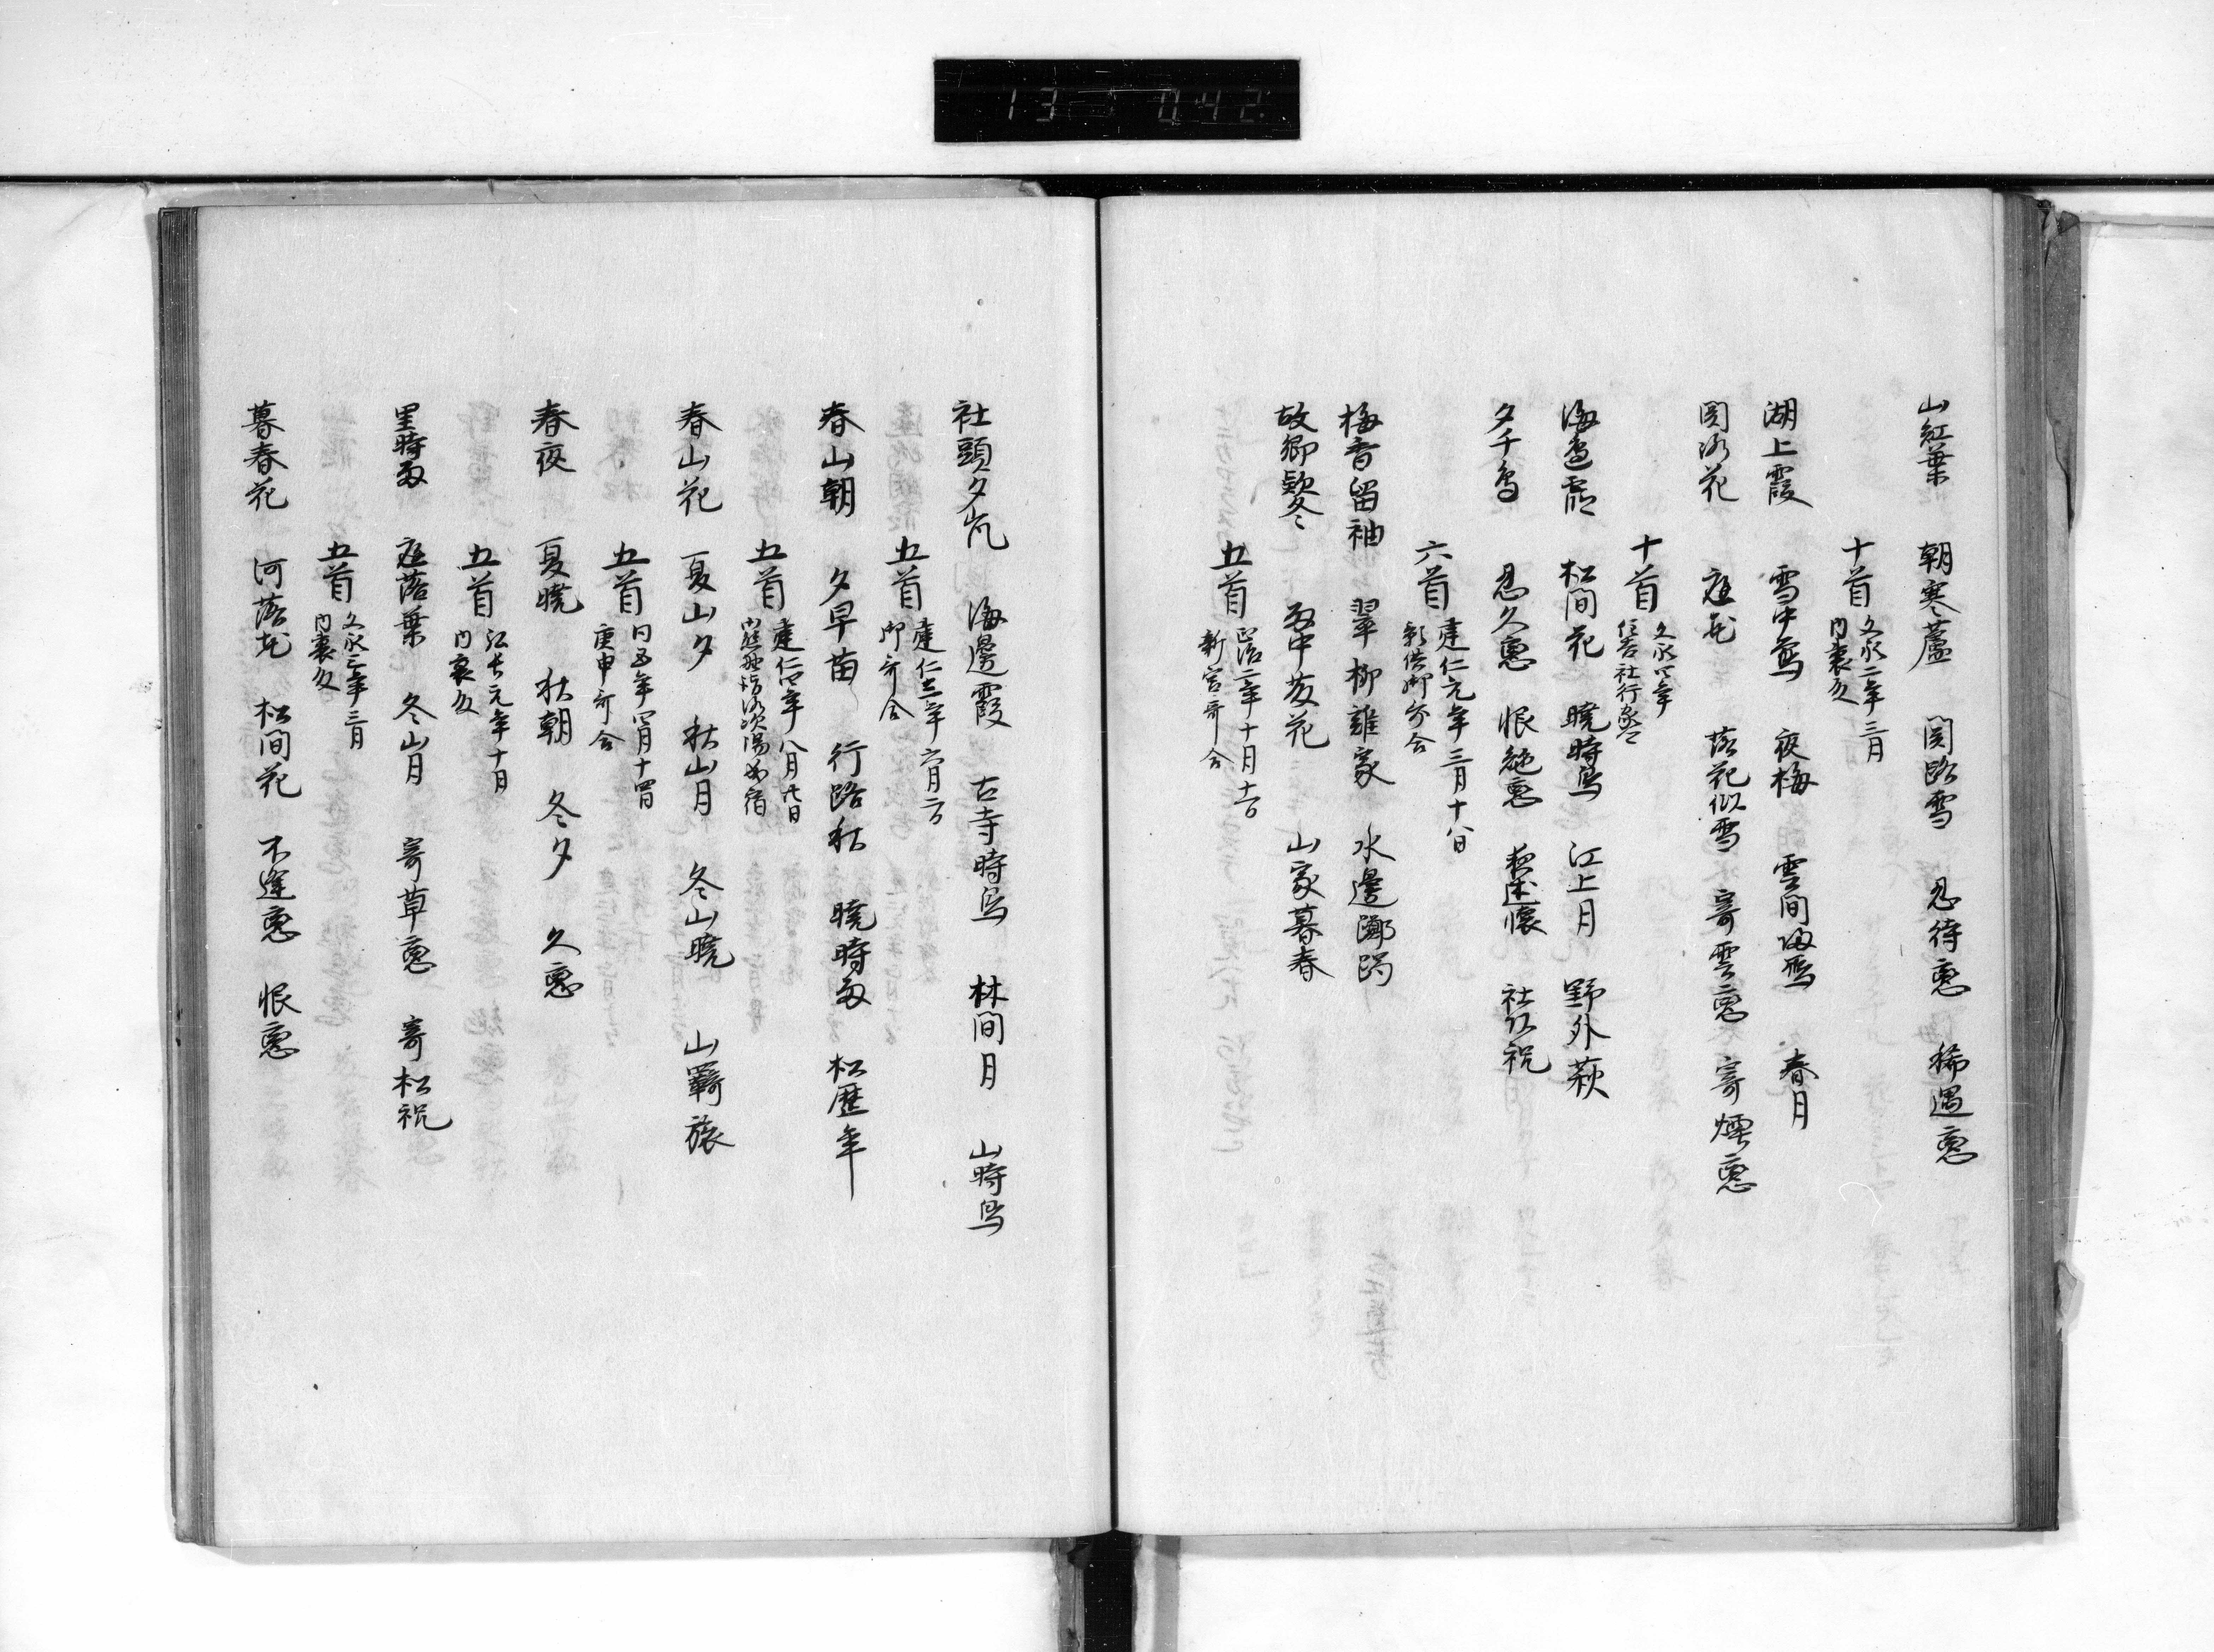 13 042
山紅葉 朝寒蘆 関路雪 忍待恋 稀遇恋
十首 文永二年三月
内裏
湖上霞 雪中鶯 夜梅 雲間帰雁 春月
関路花 庭花 落花似雪 寄雲恋 寄煙恋
十首 文永四年
住吉社
海辺霞 松間花 暁時鳥 江上月 野外萩
夕千鳥 忍久恋 恨絶恋 述懐 社頭祝
六首 建仁元年三月十八日
影供御哥合
梅香留袖 翠柳誰家 水辺躑躅
故郷欵冬 雨中藤花 山家暮春
五首 正治二年十月十一日
新宮哥合
社頭夕嵐 海邊霞 古寺時鳥 林間月 山時鳥
五首 建仁三年六月二日
御哥合
春山朝 夕早苗 行路秋 暁時雨 松歴年
五首 建仁四年八月廿日
熊野
春山花 夏山夕 秋山月 冬山暁 山羇旅
五首 同五年四月十四日
庚申哥合
春夜 夏暁 秋朝 冬夕 久恋
五首 弘長元年十月
内裏
里時雨 庭落葉 冬山月 寄草恋 寄松祝
五首 文永三年三月
内裏
暮春花 河落花 松間花 不逢恋 恨恋